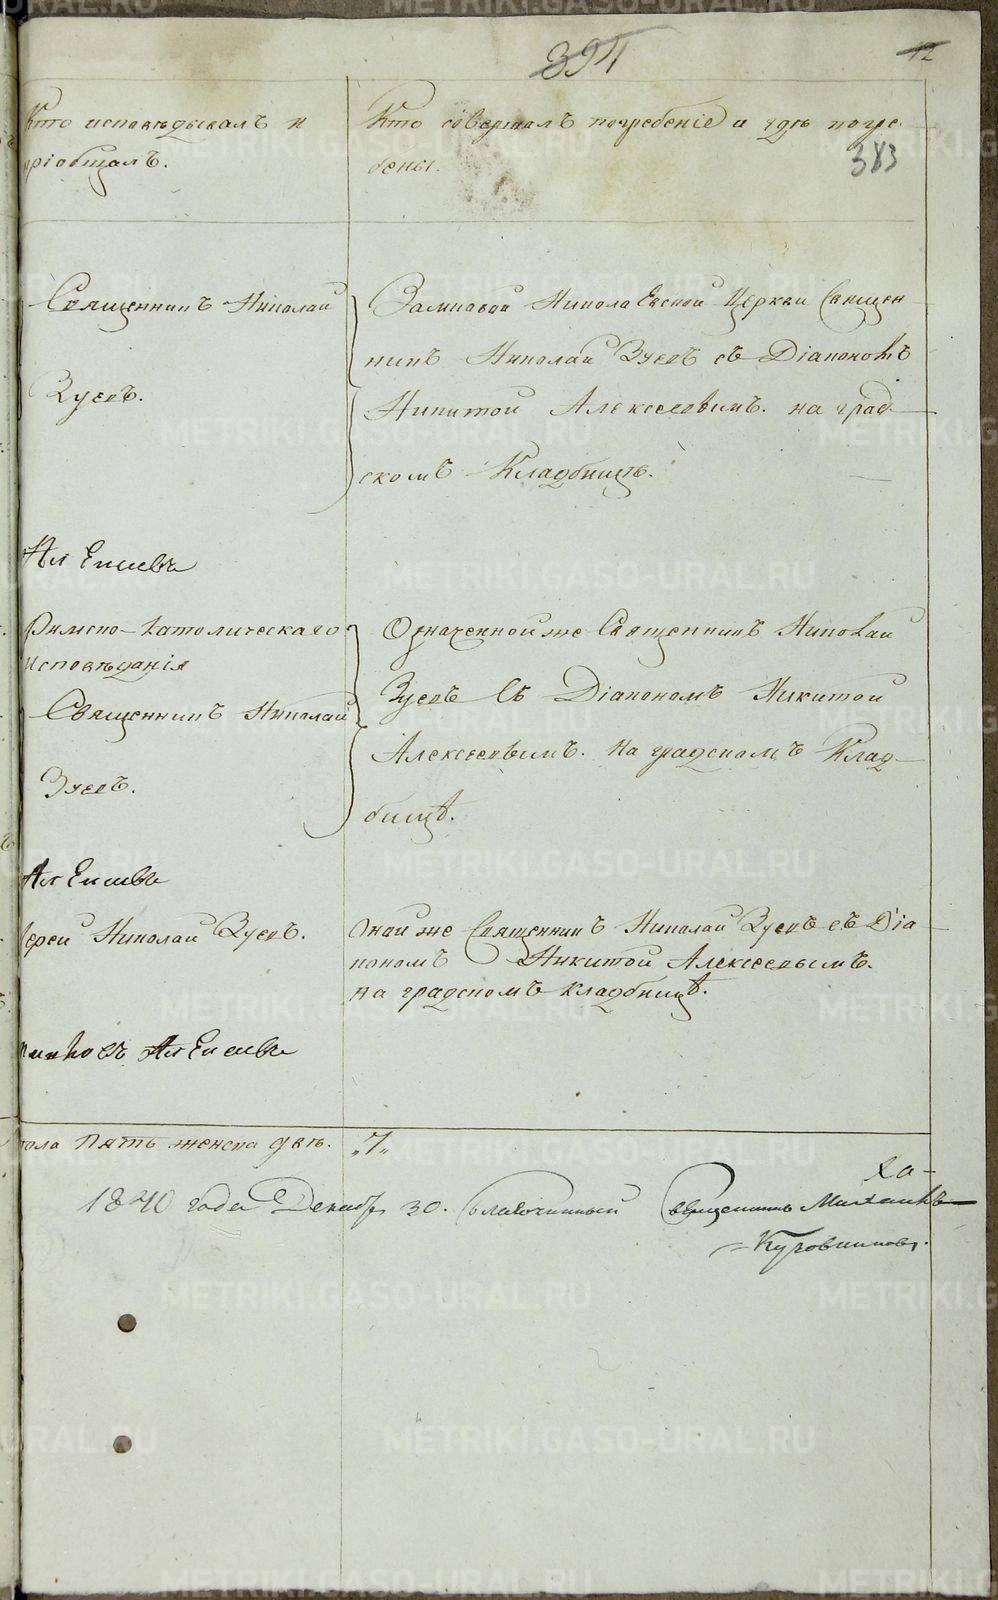 394
12
Кто исповѣдывалъ и
пріобщалъ.
Кто совершалъ погребеніе и гдѣ погре
бены.
383
Священникъ Николай
Зуевъ.
Замковой Николаевской Церкви Священ-
никъ Николай Зуевъ съ Діакономъ
Никитой Алексеевымъ. на град-
скомъ Кладбищѣ.
Римско-Католическаго
исповѣданія
Священникъ Николай
Зуевъ.
Означенной же Священникъ Николай
Зуевъ съ Діакономъ Никитой
Алексеевымъ. На градскомъ Клад-
бищѣ.
Іерей Николай Зуевъ.
Оной же Священникъ Николай Зуевъ съ Діа-
кономъ Никитой Алексеевымъ.
на градскомъ кладбищѣ.
пола пять женска двѣ. „7„
1840 года Декабр 30. Благочинный Священникъ